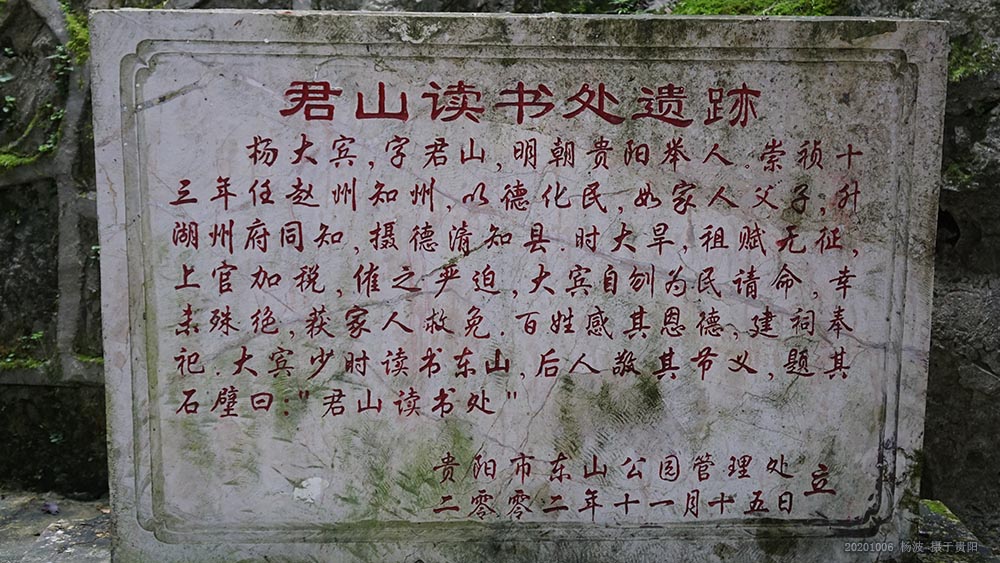 君山读书处遗跡
杨大宾，字君山，明朝贵阳举人。崇祯十
三年任赵州知州，以德化民，如家人父子，升
湖州府同知，摄德清知县．时大旱，租赋无征，
上官加税，催之严迫，大宾自刎为民请命，幸
未殊绝，获家人救免．百姓感其恩德，建祠奉
祀．大宾少时读书东山，后人敬其节义，题其
石壁曰："君山读书处"
贵阳市东山公园管理处 立
二零零二年十一月十五日
20201006 杨波 摄于贵阳